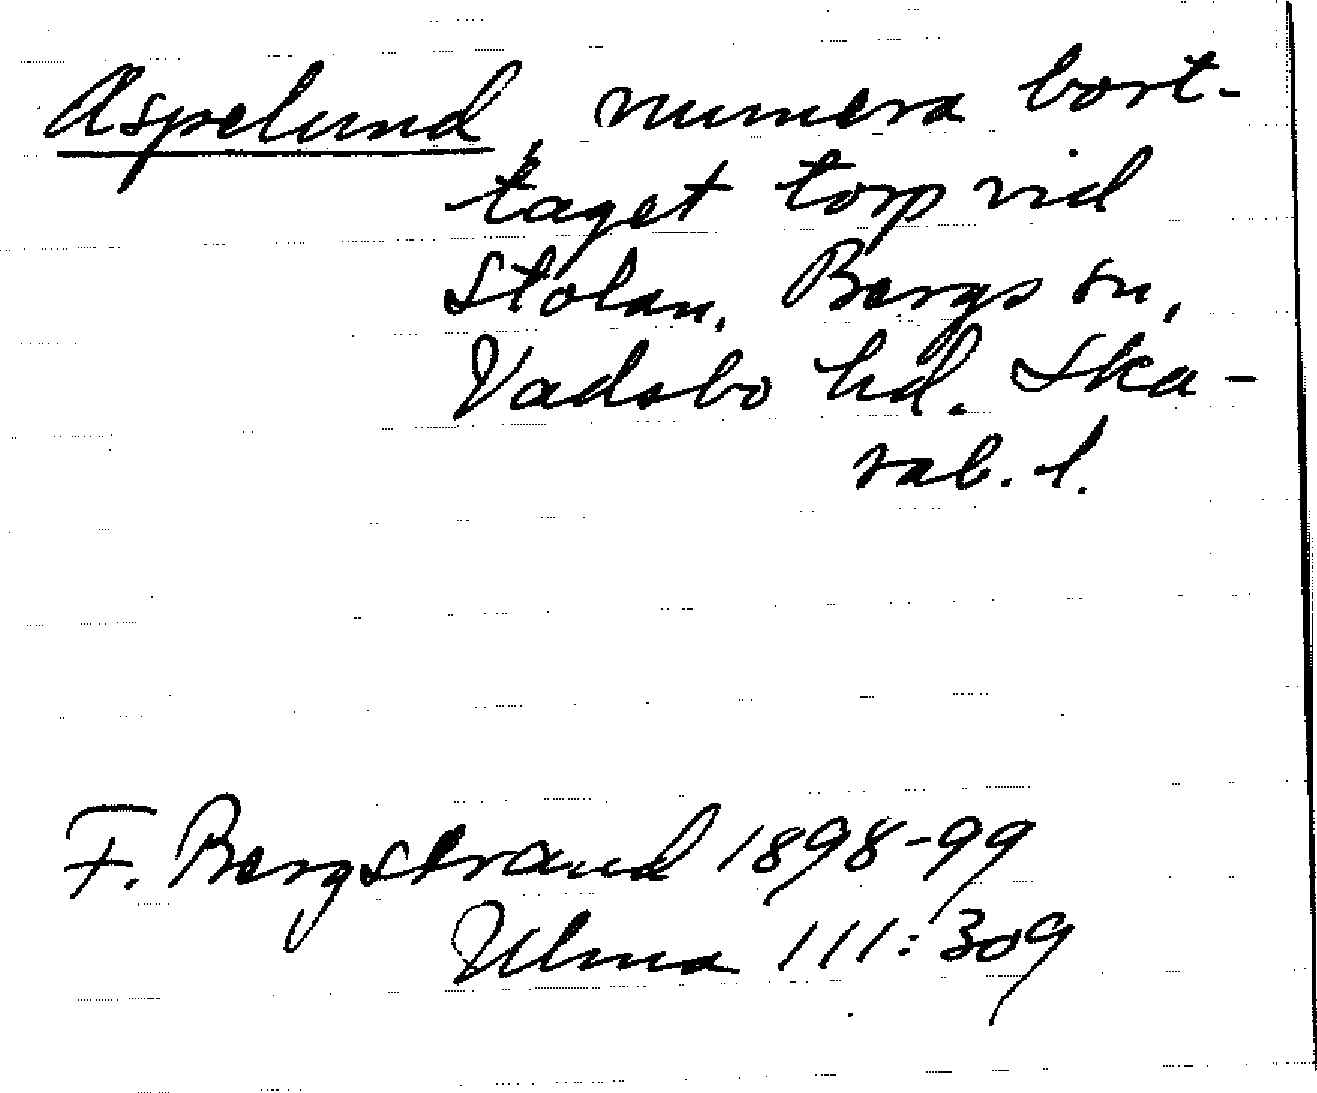 Aspelund, numera bort-
taget torp vid
Stolan, Bergs sn,
Vadsbo hd. Ska-
rab. l.
F. Bergstrand 1898-99
Ulma 111:309